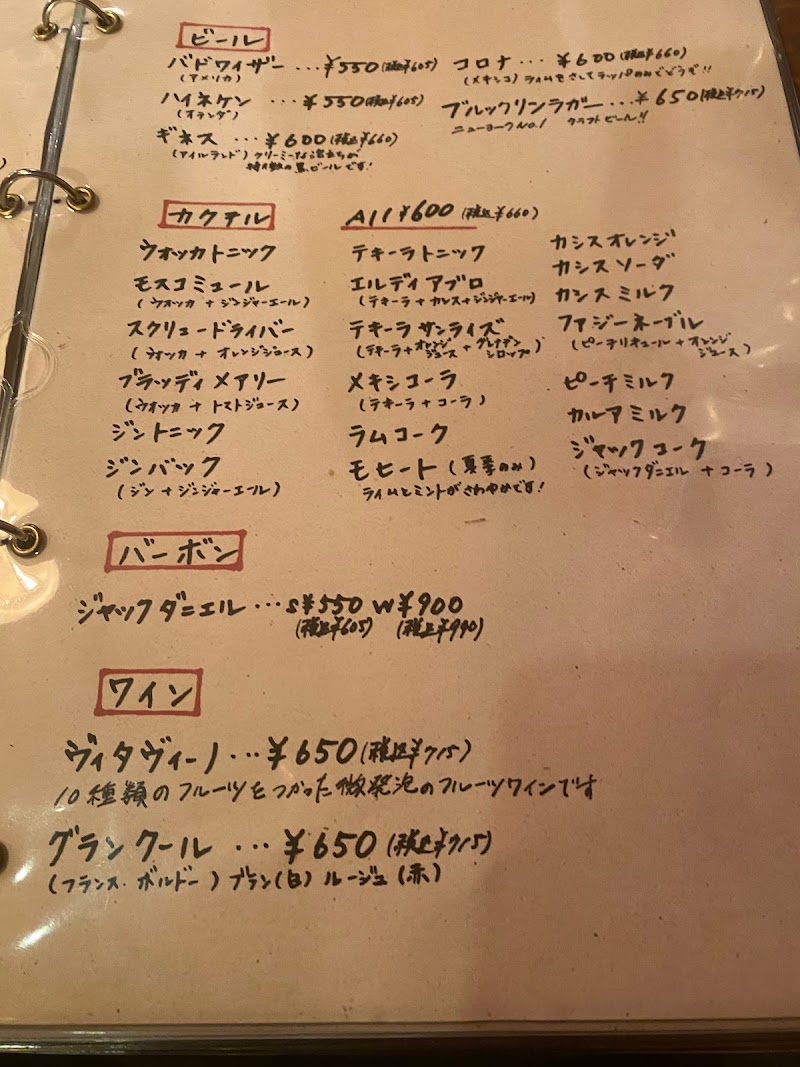 ビール
バドワイザー ・・・¥550(税込¥605)
(アメリカ)
ハイネケン ・・・¥550(税込¥605)
(オランダ)
ギネス ・・・¥600(税込¥660)
(アイルランド) クリーミーな泡立ちが
特徴の黒ビールです!
コロナ・・・¥600(税込¥660)
(メキシコ) ライムをさしてラッパのみでどうぞ!!
ブルックリンラガー・・・¥650(税込¥715)
ニューヨークNo.1 クラフトビール!!
カクテル
All ¥600 (税込¥660)
ウオッカトニック
モスコミュール
(ウオッカ+ジンジャーエール)
スクリュードライバー
(ウオッカ+オレンジジュース)
ブラッディメアリー
(ウオッカ+トマトジュース)
ジントニック
ジンバック
(ジン+ジンジャーエール)
テキーラトニック
エルディアブロ
(テキーラ+カシス+ジンジャーエール)
テキーラサンライズ
(テキーラ+オレンジジュース+グレナデンシロップ)
メキシコーラ
(テキーラ+コーラ)
ラムコーク
モヒート(夏季のみ)
ライムとミントがさわやかです!
カシスオレンジ
カシスソーダ
カシスミルク
ファジーネーブル
(ピーチリキュール+オレンジジュース)
ピーチミルク
カルアミルク
ジャックコーク
(ジャックダニエル+コーラ)
バーボン
ジャックダニエル・・・S¥550 W¥900
(税込¥605) (税込¥990)
ワイン
ヴィタヴィーノ・・・¥650(税込¥715)
10種類のフルーツをつかった微発泡のフルーツワインです
グランクール ・・・¥650(税込¥715)
(フランス・ボルドー) ブラン(白) ルージュ(赤)